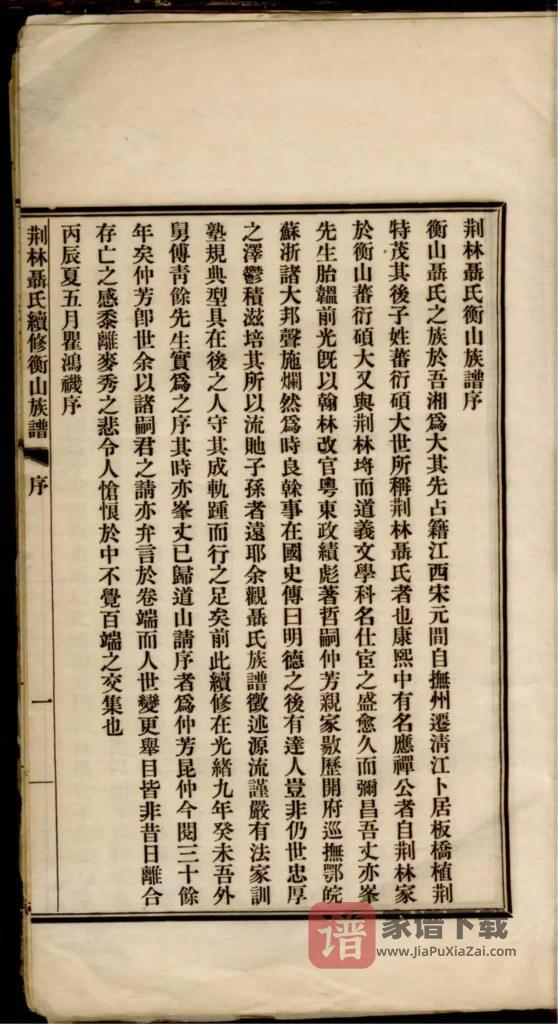 荆林聶氏衡山族譜序
衡山聶氏之族於吾湘爲大其先占籍江西宋元間自撫州遷淸江卜居板橋植荆
特茂其後子姓蕃衍碩大世所稱荆林聶氏者也康熙中有名應禪公者自荆林家
於衡山蕃衍碩大又與荆林埒而道義文學科名仕宦之盛愈久而彌昌吾丈亦峯
先生胎韞前光旣以翰林改官粵東政績彪著哲嗣仲芳親家敭歷開府巡撫鄂皖
蘇浙諸大邦聲施爛然爲時良榦事在國史傳曰明德之後有達人豈非仍世忠厚
之澤鬱積滋培其所以流貤子孫者遠耶余觀聶氏族譜徵述源流謹嚴有法家訓
塾規典型具在後之人守其成軌踵而行之足矣前此續修在光緒九年癸未吾外
舅傅靑餘先生實爲之序其時亦峯丈已歸道山請序者爲仲芳昆仲今閱三十餘
年矣仲芳卽世余以諸嗣君之請亦弁言於卷端而人世變更舉目皆非昔日離合
存亡之感黍離麥秀之悲令人愴恨於中不覺百端之交集也
丙辰夏五月瞿鴻禨序
荆林聶氏續修衡山族譜 序 一
谱 家谱下载
www.JiaPuXiaZai.com